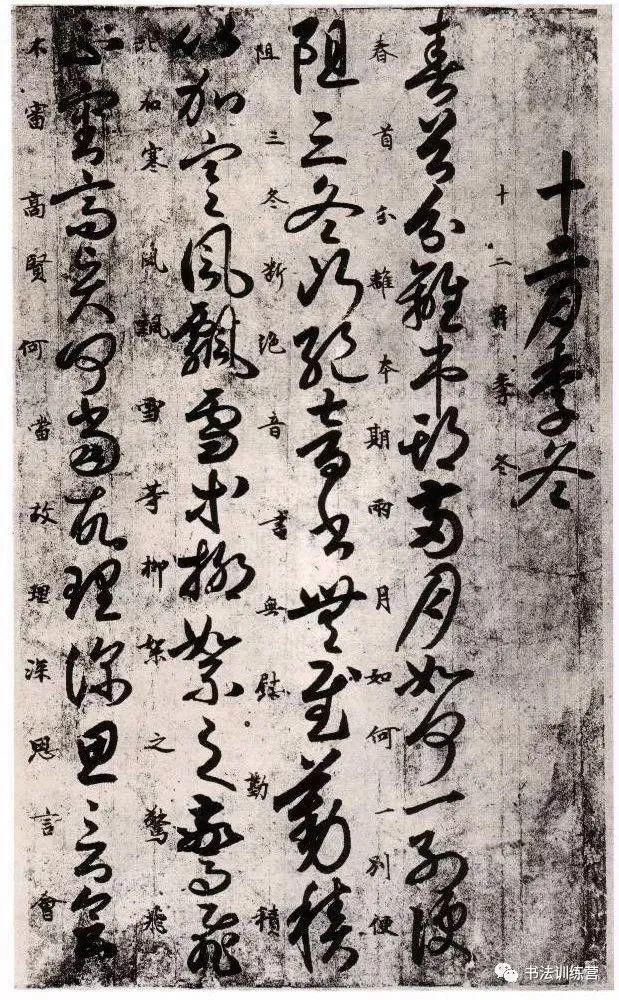 十二月季冬
十二月季冬
春首分離本期兩月如何一別便
春首分離本期兩月如何一別便
阻三冬斷絕音書無慰勤積
阻三冬断絶音書無慰勤積
比加寒風飄雪等柳絮之驚飛
比加寒風飄雪等柳絮之驚飛
不審高賢何當故理深思言會
不審高賢何當故理深思言會
书法训练营